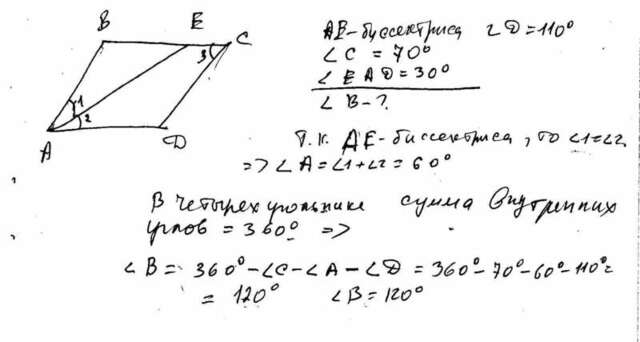 B E C
3
1
2
A D
AE-биссектриса ∠D=110°
∠C = 70°
∠EAD=30°
∠B-?
Т.к. AE-биссектриса, то ∠1=∠2
=> ∠A=∠1+∠2=60°
В четырехугольнике сумма внутренних
углов = 360° =>
∠B = 360°-∠C-∠A-∠D = 360°-70°-60°-110°=
= 120° ∠B=120°